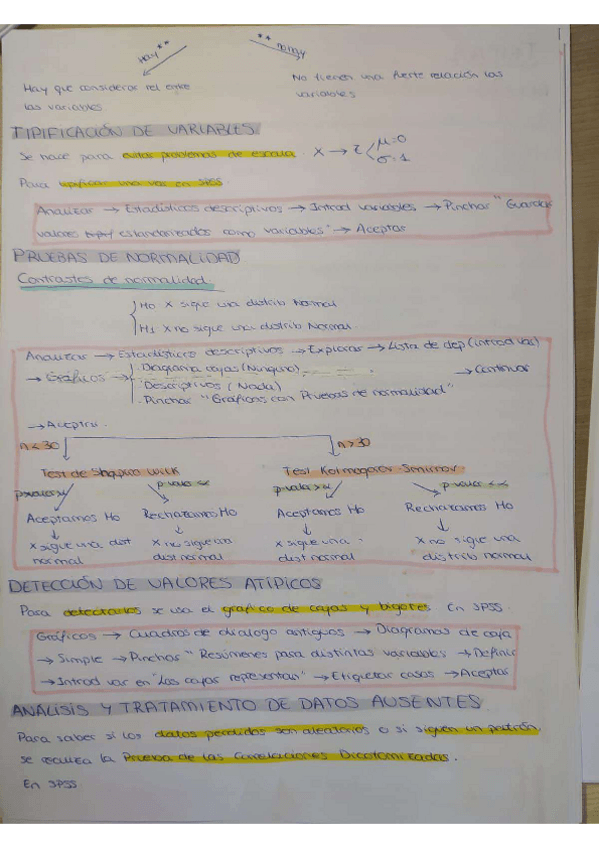 Hay **
** no hay
Hay que considerar rel entre
las variables
No tienen una fuerte relación las
variables
TIPIFICACIÓN DE VARIABLES
Se hace para evitar problemas de escala. X → Z < μ=0
σ=1
Para tipificar una var en SPSS
Analizar → Estadísticos descriptivos → Introd variables → Pinchar "Guardar
valores estandarizados como variables" → Aceptar
PRUEBAS DE NORMALIDAD
Contrastes de normalidad
H0 X sigue una distrib Normal
H1 X no sigue una distrib Normal.
Analizar → Estadísticos descriptivos → Explorar → Lista de dep (introd var)
→ Gráficos → · Diagrama cajas (Ninguno) → Continuar
· Descriptivos (Nada)
· Pinchar "Gráficos con Pruebas de normalidad"
→ Aceptar.
n<30 n>30
Test de Shapiro Wilk Test Kolmogorov-Smirnov
p valor>α p valor<α p-valor>α p-valor<α
Aceptamos H0 Rechazamos H0 Aceptamos H0 Rechazamos H0
X sigue una dist X no sigue una X sigue una X no sigue una
normal dist normal dist normal distrib normal
DETECCIÓN DE VALORES ATÍPICOS
Para detectarlos se usa el gráfico de cajas y bigotes. En SPSS
Gráficos → Cuadros de dialogo antiguos → Diagramas de caja
→ Simple → Pinchar "Resúmenes para distintas variables → Definir
→ Introd var en "Las cajas representan" → Etiquetar casos → Aceptar
ANÁLISIS Y TRATAMIENTO DE DATOS AUSENTES
Para saber si los datos perdidos son aleatorios o si siguen un patrón,
se realiza la Prueba de las Correlaciones Dicotomizadas.
En SPSS